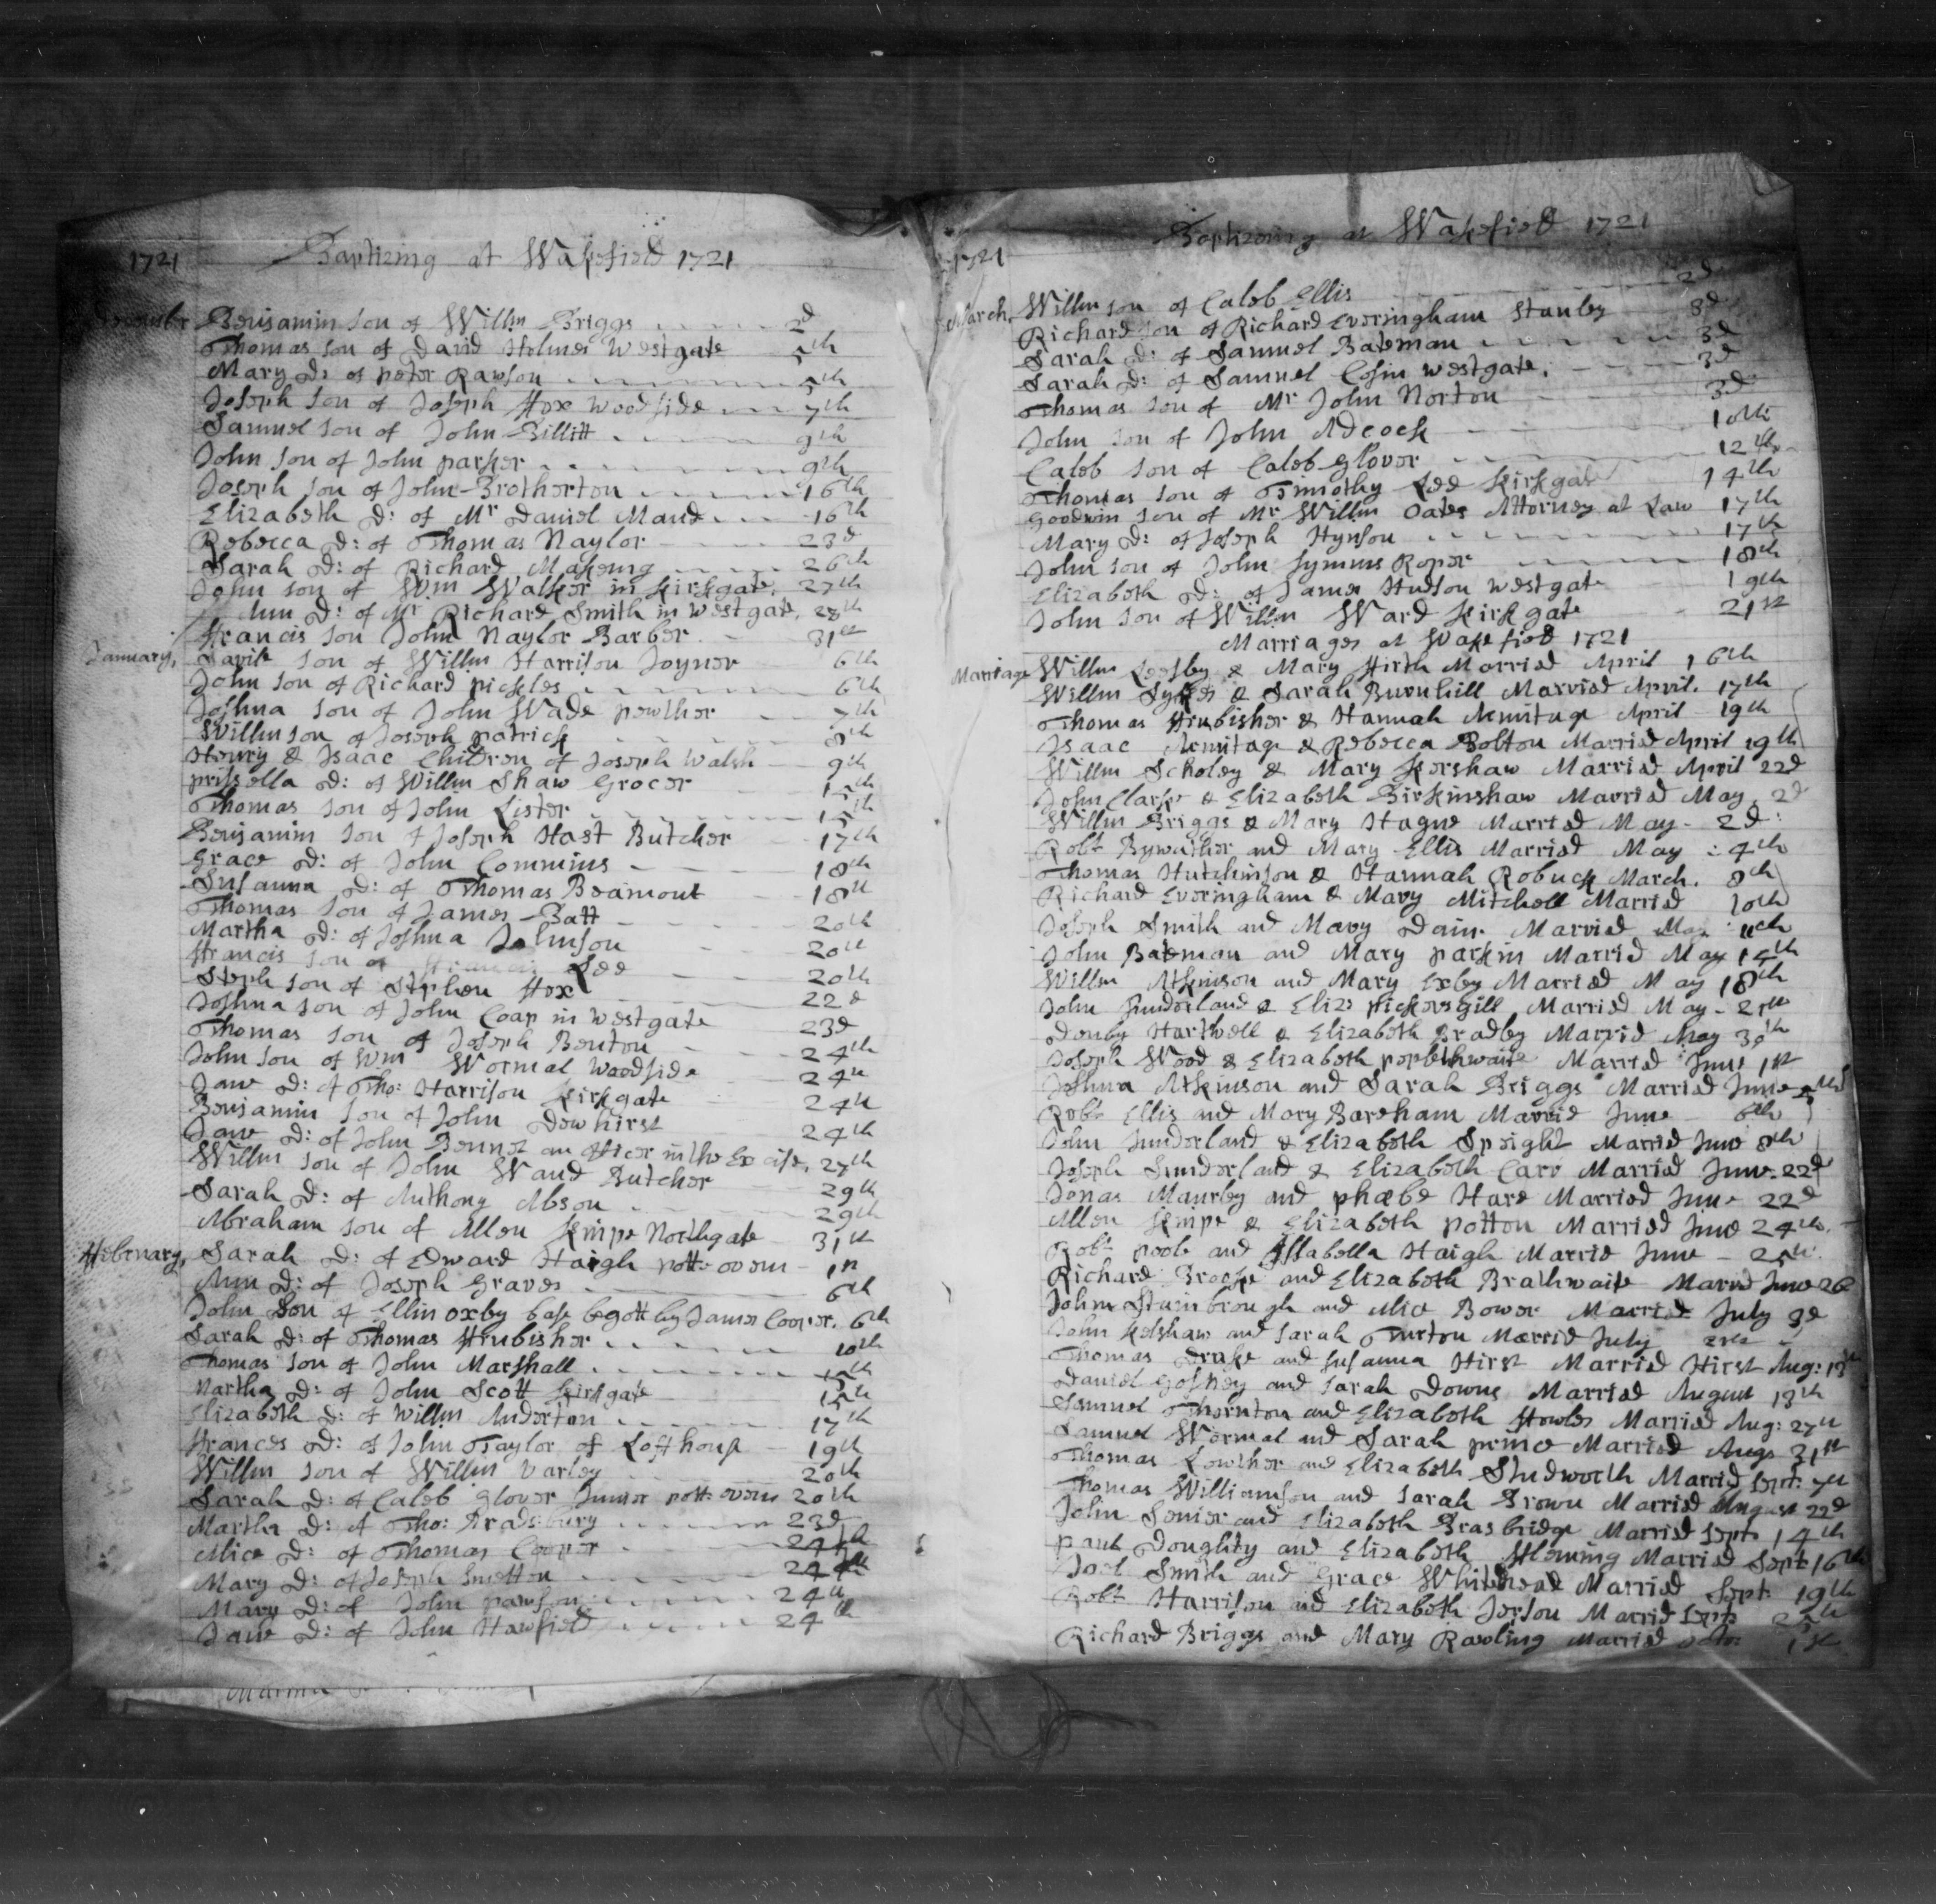 1721 Baptizing at Wakefield 1721
December Benjamin son of Willm Briggs 2d
Thomas son of David Holmes Westgate 5th
Mary d: of peter Rawson 5th
Joseph son of Joseph ffox Woodside 7th
Samuel son of John Billitt 9th
John son of John parker 9th
Joseph son of John Brotherton 16th
Elizabeth d: of Mr Daniel Maud 16th
Rebecca d: of Thomas Naylor 23d
Sarah d: of Richard Makeing 26th
John son of Wm Walker in Kirkgate. 27th
Ann d: of Mr Richard Smith in Westgate. 28th
ffrancis son John Naylor Barber 31st
January, Savile son of Willm Harrison Joyner 6th
John son of Richard pickles 6th
Joshua son of John Wade pewther 7th
Willm son of Joseph patrick 8th
Henry & Isaac Children of Joseph Walsh 9th
prissella d: of Willm Shaw Grocer 15th
Thomas son of John Lister 15th
Benjamin son of Joseph Hast Butcher 17th
Grace d: of John Commins 18th
Susanna d: of Thomas Beamont 18th
Thomas son of James Batt 20th
Martha d: of Joshua Johnson 20th
ffrancis son of ffrancis Lee 20th
Steph son of Stephen ffox 22d
Joshua son of John Coap in Westgate 23d
Thomas son of Joseph Benton 24th
John son of Wm Wormal Woodside 24th
Jane d: of Tho: Harrison Kirkgate 24th
Benjamin son of John Dewhirst 24th
Jane d: of John Bennet an officer in the Excise, 27th
Willm son of John Wand Butcher 29th
Sarah d: of Anthony Abson 29th
Abraham son of Allen Kempe Northgate 31st
ffebruary, Sarah d: of Edward Haigh pott-ovens 1st
Ann d: of Joseph Graves 6th
John Son of Ellin oxby base begott by James Cooper. 6th
Sarah d: of Thomas ffrubisher 10th
Thomas son of John Marshall 15th
Martha d: of John Scott Kirkgate 15th
Elizabeth d: of Willm Anderton 17th
ffrances d: of John Taylor of Loffhouse 19th
Willm son of Willm Varley 20th
Sarah d: of Caleb Glover Junior pott-ovens 20th
Martha d: of Tho: Bradsbury 23d
Alice d: of Thomas Cooper 24th
Mary d: of Joseph Smetton 24th
Mary d: of John pawson 24th
Jane d: of John Hawfield 24th
1721 Baptizeing at Wakefield 1721
March, Willm son of Caleb Ellis 2d
Richard son of Richard Everingham Stanley 3d
Sarah d: of Samuel Bateman 3d
Sarah d: of Samuel Cosin westgate. 3d
Thomas son of Mr John Norton 3d
John son of John Adcock 10th
Caleb son of Caleb Glover 12th
Thomas son of Timothy Lee Kirkgate 14th
Goodwin son of Mr Willm Oates Attorney at Law 17th
Mary d: of Joseph Hynson 17th
John son of John Symms Roper 18th
Elizabeth d: of James Hudson westgate 19th
John son of Willm Ward Kirkgate 21st
Marriages at Wakefield 1721
Marriage Willm & Mary ffirth Married April 16th
Willm Sykes & Sarah Burnhill Married April. 17th
Thomas ffrubisher & Hannah Armitage April 19th
Isaac Armitage & Rebecca Bolton Married April 19th
Willm Scholey & Mary Kershaw Married April 22d
John Clarke & Elizabeth Birkinshaw Married May. 2d
Willm Briggs & Mary Hague Married May - 2d:
Robt Bywather and Mary Ellis Married May : 4th
Thomas Hutchinson & Hannah Robuck March. 8th
Richard Everingham & Mary Mitchell Married 10th
Joseph Smith and Mary Dain Married May 11th
John Bateman and Mary parkin Married May 15th
Willm Atkinson and Mary Exby Married May 18th
John Sunderland & Eliz: pickersgill Married May -
Denby Hartwell & Elizabeth Bradley Married May 30th
Joseph Wood & Elizabeth popelthwaite Married June 1st
Joshua Atkinson and Sarah Briggs Married June 5th
Robt Ellis and Mary Bareham Married June 6th
John Sunderland & Elizabeth Speight Married June 8th
Joseph Sunderland & Elizabeth Carr Married June. 22d
Jonas Maurley and phœbe Hare Married June 22d
Allen Kempe & Elizabeth potton Married June 24th.
Robt poole and Issabella Haigh Married June - 25th.
Richard Brooke and Elizabeth Brathwaite Married June 26
John Stainbrough and Alice Bower Married July 3d
John Kelshaw and Sarah Turton Married July
Thomas Drake and Susanna Hirst Married Hirst Aug: 13th
Daniel Goskey and Sarah Downs Married August 13th
Samuel Thornton and Elizabeth ffowler Married Aug: 27th
Samuel Wormal and Sarah prince Married Augs 31st
Thomas Lowther and Elizabeth Studworth Married Sept: 7th
Thomas Williamson and Sarah Brown Married August 22d
John Senior and Elizabeth Brasbridge Married Sept 14th
paul Doughty and Elizabeth ffleming Married Sept: 16th
Joel Smith and Grace Whitehead Married Sept: 19th
Robt Harrison and Elizabeth Jerson Married Sept 25th
Richard Briggs and Mary Rawling Married octo: 1st